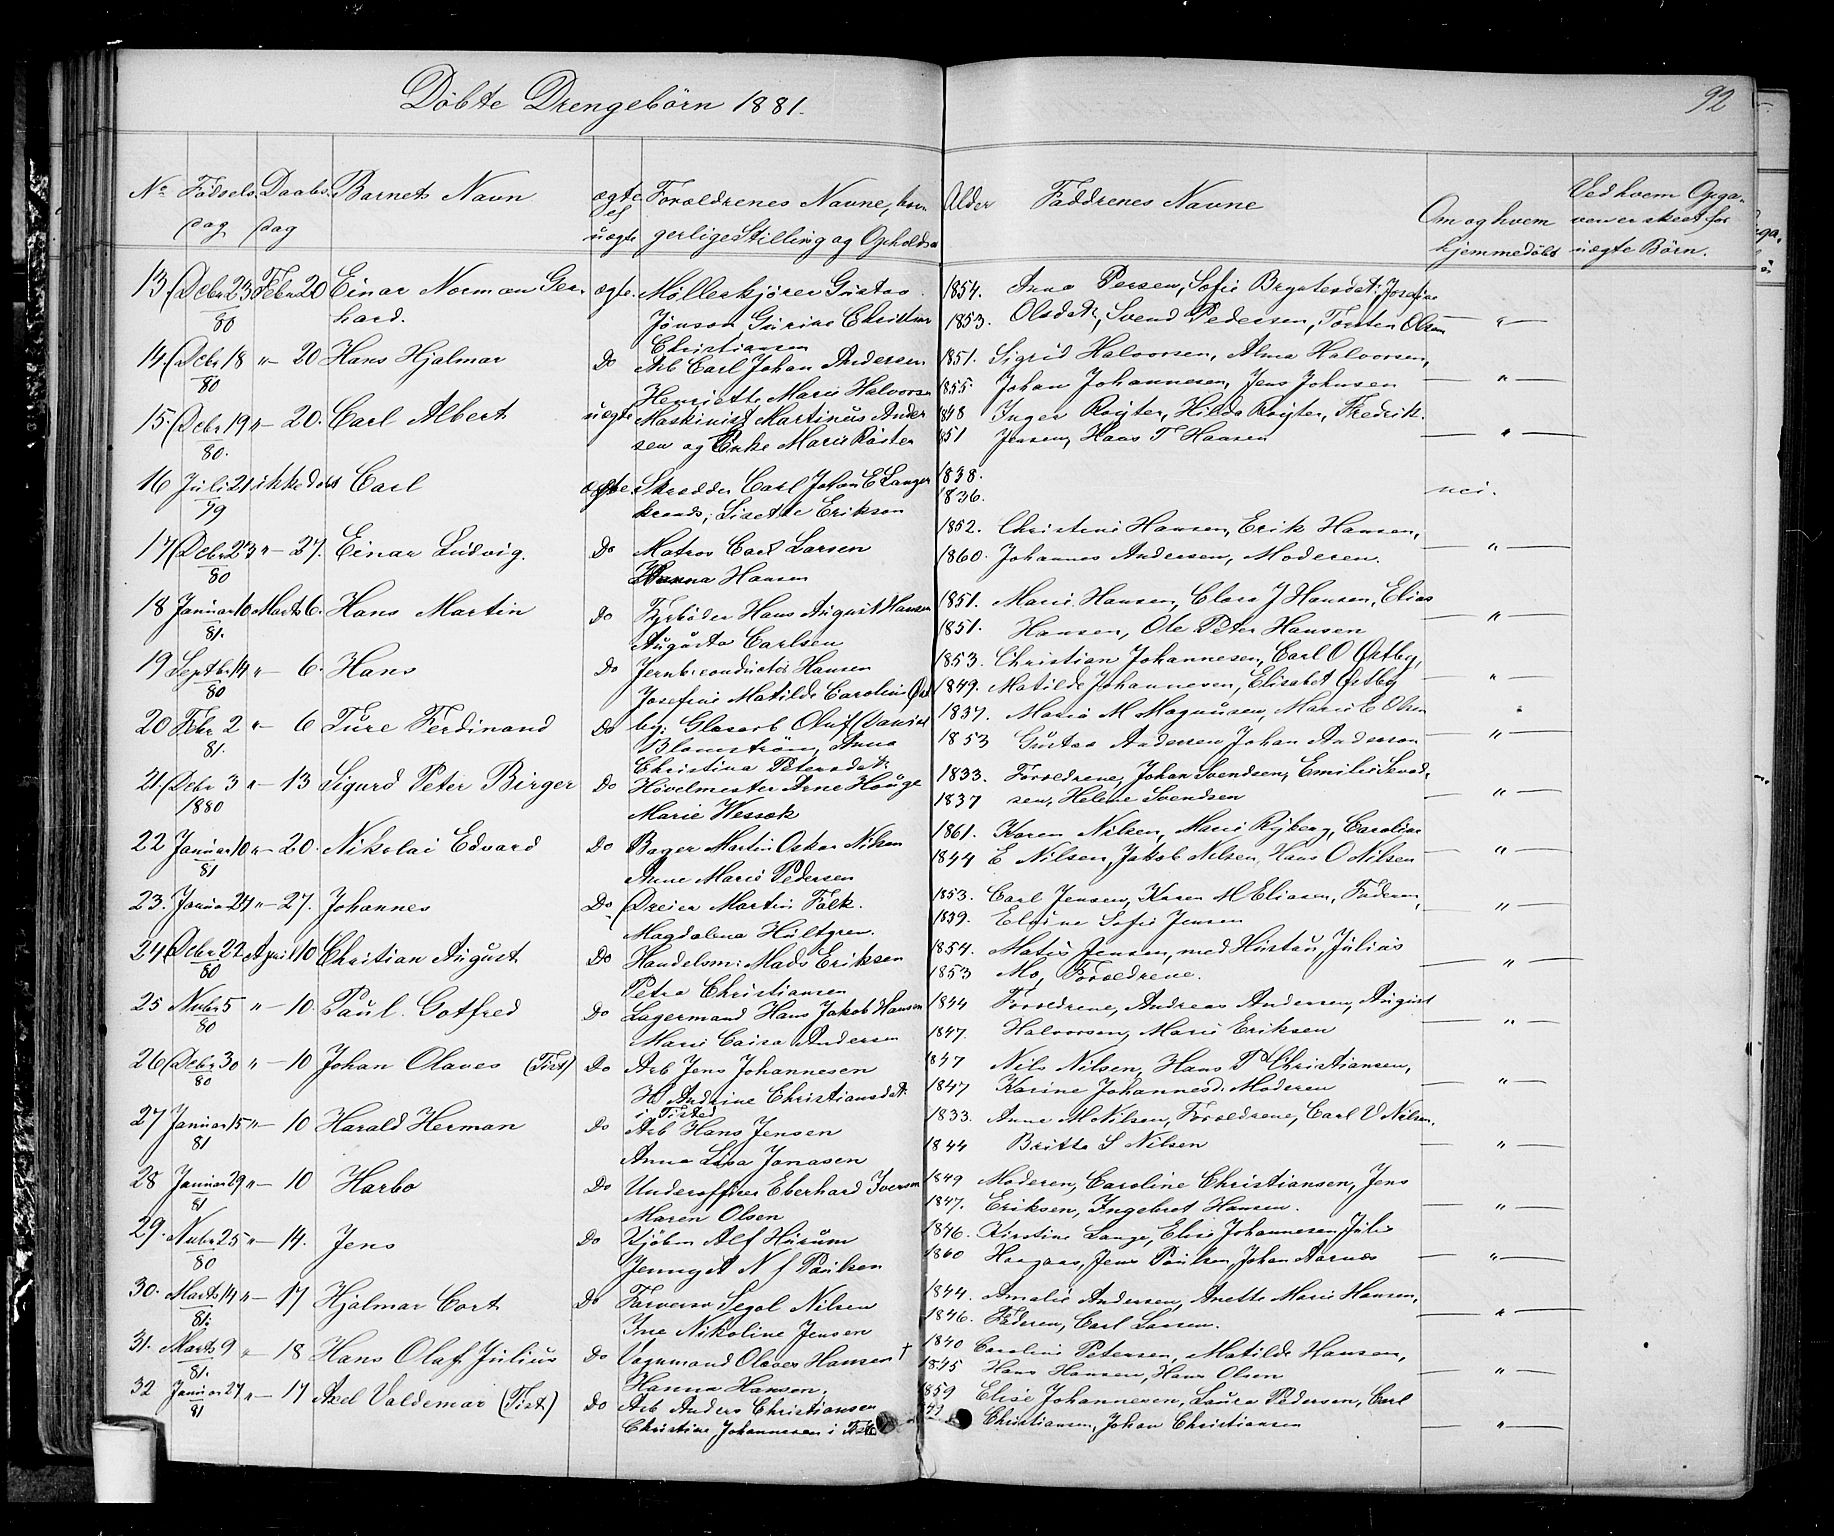 Döbte Drengebörn 1881.
92
No Födsels Daabs Barnets Navn ægte Foræeldrenes Navne, bor- Alder Faddrenes Navne Ved hvem Opga-
dag dag el uægte gerlige Stilling og Opholds Om og hvem hjemmedöbt ven er skeet for uægte Börn.
13 Decbr 23 80 Febr 20 Einar Norman Ger- ægte. Möllerkjörer Gustav 1854. Anna Persen, Sofie
hard. Jönson Gurine Christine 1853. Olsdatr, Svend Pedersen, Torsten Olsen — " —
Christiansen
14 Decbr 18 80 " 20 Hans Hjalmar Do Arb Carl Johan Andersen 1851. Sigrid Halvorsen, Alma Halvorsen,
Henriette Marie Halvorsen 1855 Johan Johannesen, Jens Johnsen — " —
15. Decbr 19 80. " 20. Carl Albert uægte Maskinist Martinus Ander 1848 Inger Röyter, Hilda Röyter, Fredrik
sen og Enke Marie Röster 851 Jensen, Hans T Hansen — " —
16 Juli 21 79 ikke döbt Carl ægte. Skrædder Carl Johan E Langer 1838. nei.
Erikson 1836.
17 Decbr 23 80 " 27. Einar Ludvig. Do Matros Carl Larsen 1852. Christine Hansen, Erik Hansen,
Hanna Hansen 1860. Johannes Andersen, Moderen. — " —
18 Januar 10 81. Marts 6. Hans Martin Do Fyrböder Hans August Hansen 1851. Marie Hansen, Clara J Hansen, Elias
Augusta Carlsen 1851. Hansen, Ole Peter Hansen — " —
19 Septbr 14 80 " 6. Hans Do Jernb: conductör Hansen 1853. Christian Johannesen, Carl O Östby,
Josefine Matilde Caroline Öst 1849. Matilde Johannesen, Elisabet Östby — " —
20 Febr 2 81. " 6 Ture Ferdinand Do by; Glasarb Oluf Daniel 1837. Maria M Magnusen, Marie E Olsen "
Blomström, Anna 1853 Gustaa Andersen Johan Anderson — " —
Christina Petersdat:
21. Decbr 3 1880 " 13 Sigurd Peter Birger Do Hövelmester Arne Hauge 1833. Foræeldrene, Johan Svendsen, Emilie Svend-
Marie Wessek 1837 sen, Helene Svendsen — " —
22 Januar 10 81 " 20. Nikolai Edvard Do Bager Martin Oskar Nilsen 1861. Karen Nilsen, Marie Ryberg, Caroline
Anne Marie Pedersen 1844 E Nilsen, Jakob Nilsen, Hans O Nilsen — " —
23. Januar 24 " 27. Johannes Do Dreier Martin Falk. 1853. Carl Jensen, Karen M Eliasen, Faderen,
Magdalena Hultgren. 1839. Elvine Sofie Jensen — " —
24 Decbr 22 80 April 10 Christian August Do Handelsm: Mads Eriksen 1854. Matis Jensen, med Hustru, Julius
Petra Christiansen 1853 Mo, Foræeldrene. — " —
25 Nvbr 5 80 " 10. Paul Gotfred Do Lagermand Hans Jakob Hansen 1844 Foræeldrene, Andreas Andersen, August
Marie Caisa Andersen 1847. Halvorsen, Marie Eriksen — " —
26 Decbr 30 80 " 10 Johan Olaves (Tist) Do Arb Jens Johannesen 1847 Nils Nilsen, Hans P Christiansen,
H Andrine Christiansdat: 1847 Karine Johannesd: Moderen — " —
i Tisted
27 Januar 15 81 " 10 Harald Herman Do Arb Hans Jensen 1833. Anne M Nilsen, Foræeldrene, Carl V Nilsen,
Anna Lisa Jonasen 1844 Britta S Nilsen — " —
28 Januar 29 81 " 10 Harbo Do Underofficer Eberhard Iversen 1849 Moderen, Caroline Christiansen, Jens
Maren Olsen 1847. Eriksen, Ingebret Hansen. — " —
29. Nvbr 25 80 " 14. Jens Do Kjöbm Alf Hurum 1846. Kirstine Lange, Elise Johannesen, Julie
Jenny A N f Paulsen 1860 Haagaas, Jens Paulsen, Johan Aarnæs — " —
30. Marts 14 81. " 17 Hjalmar Cort Do Farversv Segol Nilsen 1844. Amalie Andersen, Anette Marie Hansen,
Ine Nikoline Jensen 1846. Faderen, Carl Larsen. — " —
31. Marts 9 81. " 18 Hans Olaf Julius Do Vognmand Olaves Hansen † 1840 Caroline Petersen, Matilde Hansen,
Hanna Hansen. 1845 Hans Hansen, Hans Olsen — " —
32 Januar 27 81 " 17 Axel Valdemar (Tist) Do Arb Anders Christiansen 1859 Elise Johannesen, Laura Pedersen, Carl
Christine, Johannesen i Tist Christiansen, Johan Christiansen — " —